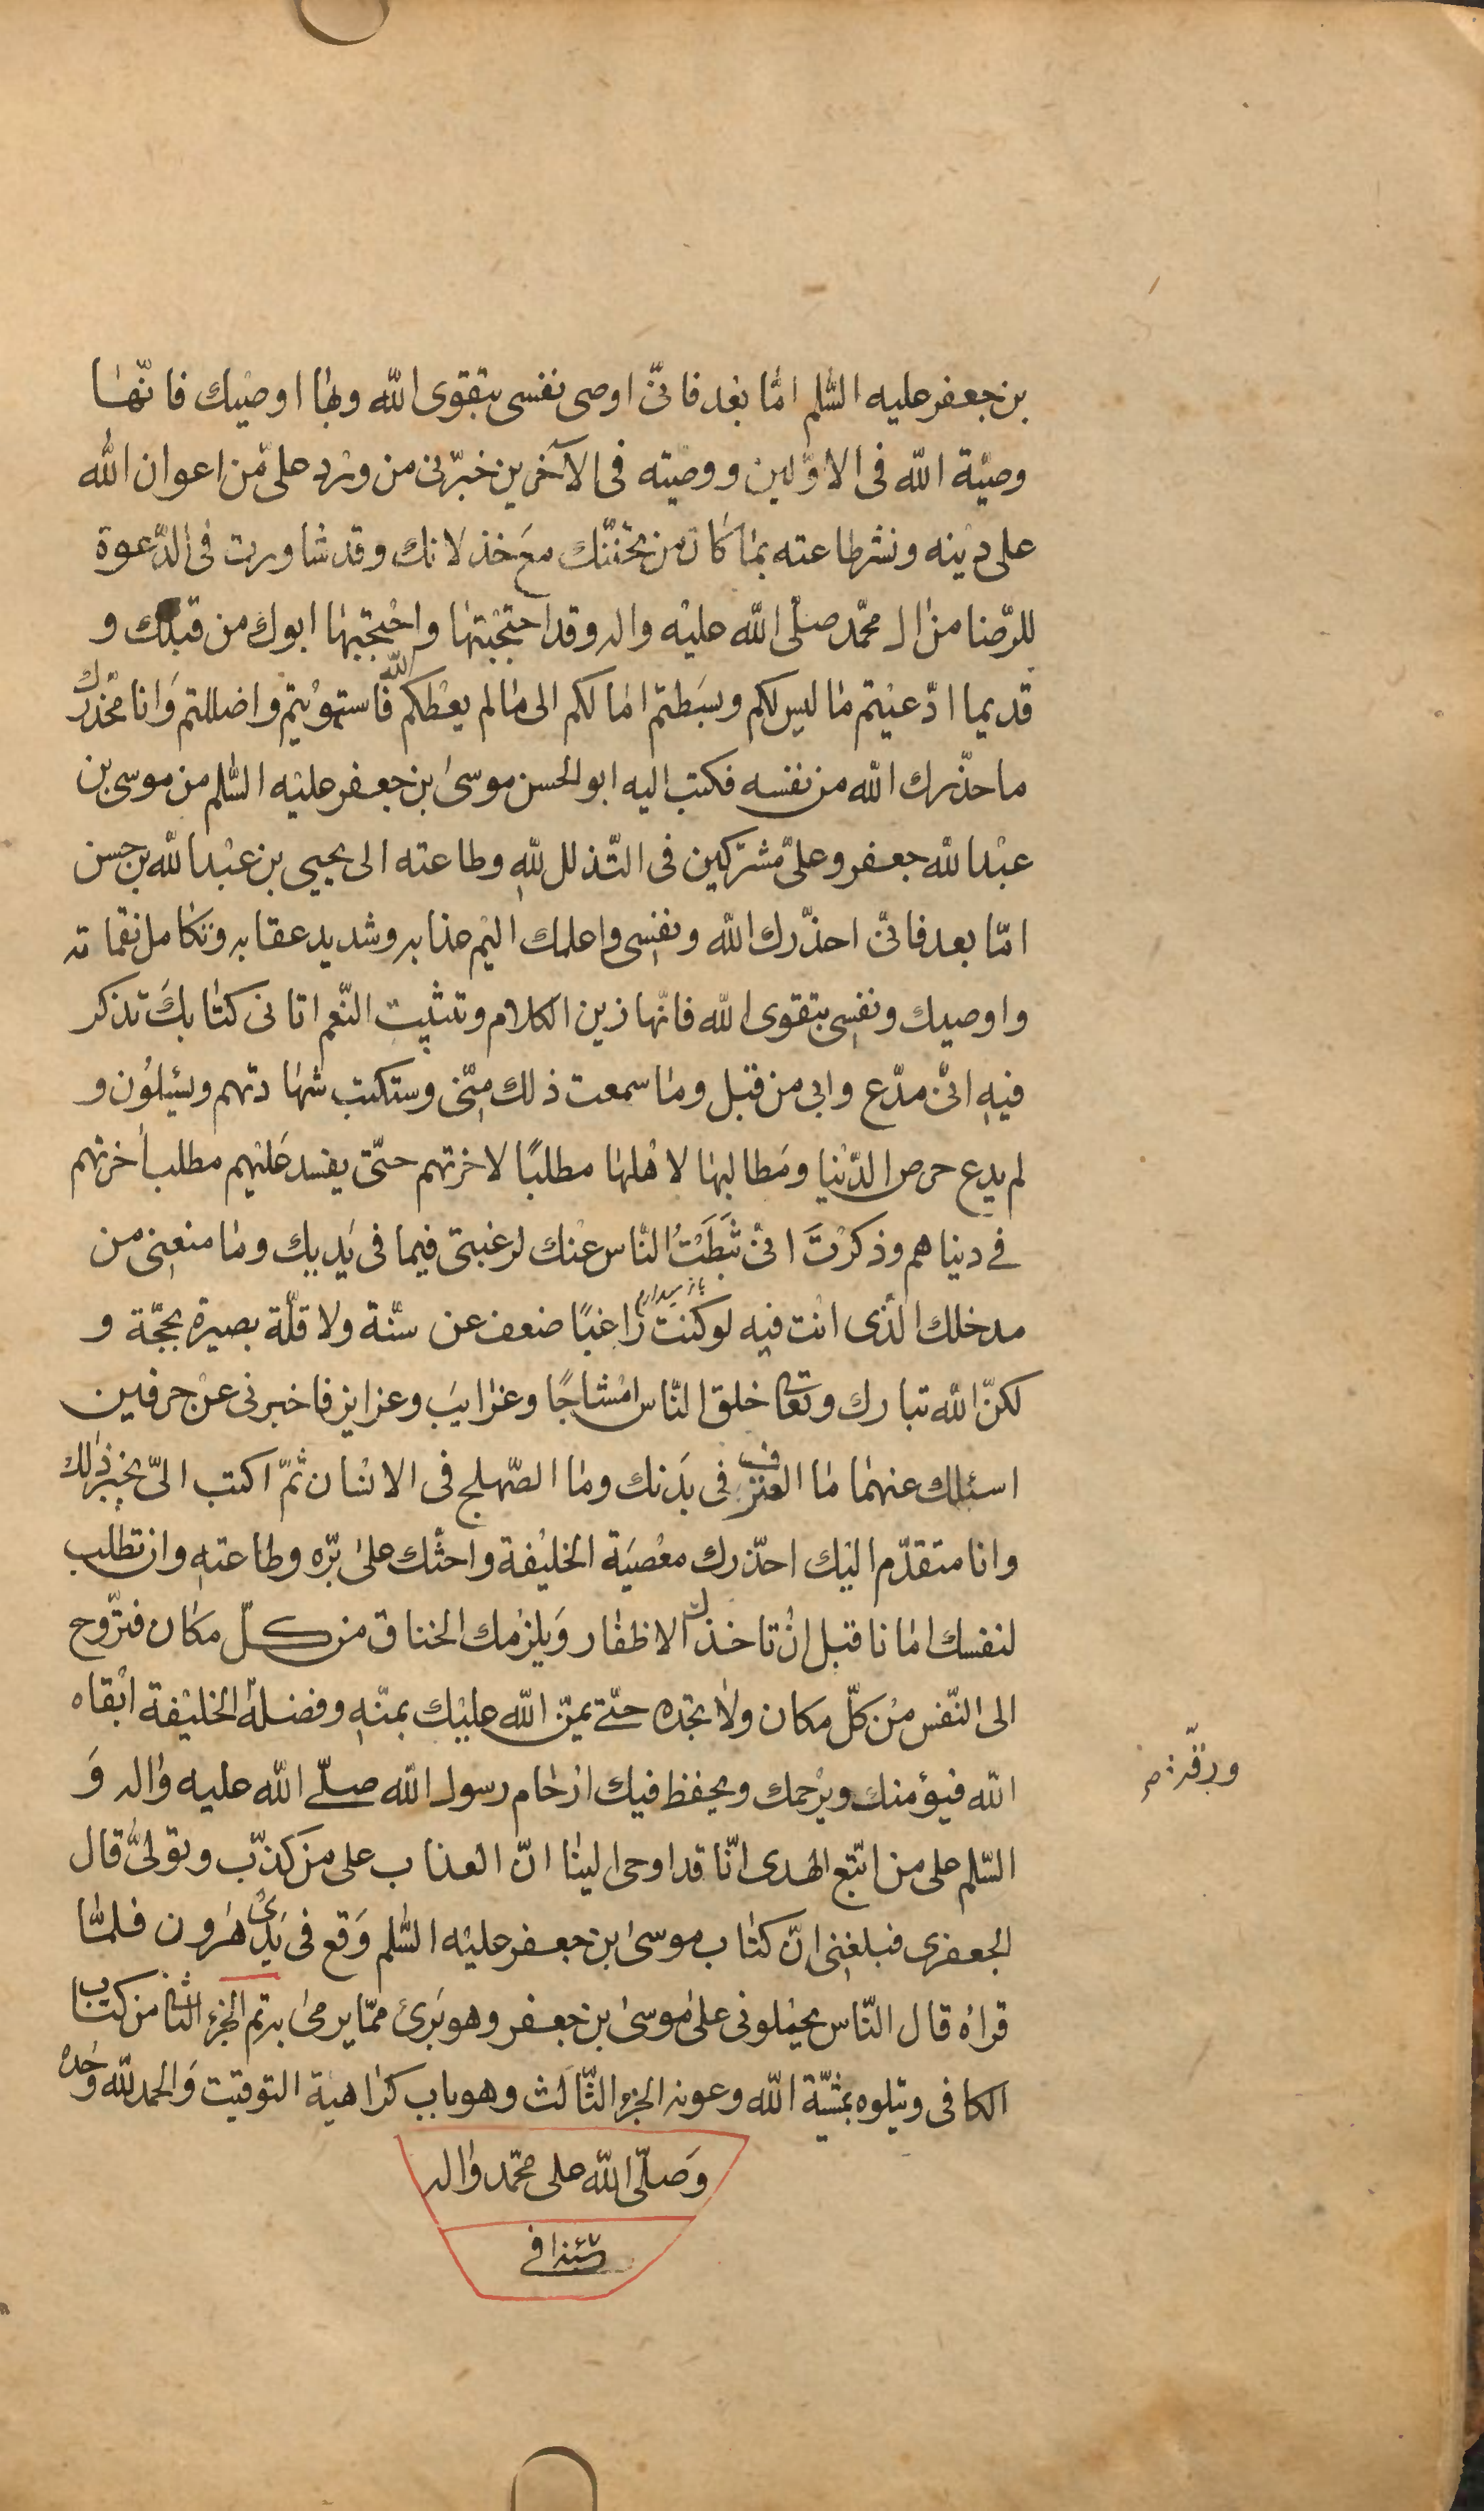 بن جعفر عليه السّلم امّا بعد فانّى اوصى نفسى بتقوى الله وبها اوصيك فانّها
وصيّة الله فى الاوّلين ووصيته فى الآخرين خبّرنى من ورد علىّ من اعوان الله
على دينه ونشر طاعته بما كان من تحنّنك مع خذلانك وقد شاورت فى الدّعوة
للرّضا من ال محمّد صلّى الله عليه واله وقد احتجبتها واحتجبها ابوك من قبلك و
قديما ادّعيتم ما ليس لكم وبسطتم امالكم الى ما لم يعطكم الله فاستهويتم واضللتم وانا محذّرك
ما حذّرك الله من نفسه فكتب اليه ابو الحسن موسى بن جعفر عليه السّلم من موسى بن
عبد الله جعفر وعلىّ مشتركين فى التّذلل لله وطاعته الى يحيى بن عبد الله بن حسن
امّا بعد فانّى احذّرك الله ونفسى واعلمك اليم عذابه وشديد عقابه وتكامل نقماته
واوصيك ونفسى بتقوى الله فانّها زين الكلام وتثبيت النّعم اتانى كتابك تذكر
فيه انّى مدّع وابى من قبل وما سمعت ذلك منّى وستكتب شهادتهم ويسئلون و
لم يدع حرص الدّنيا ومطالبها لاهلها مطلبًا لاخرتهم حتّى يفسد عليهم مطلب اخرتهم
فى دنياهم وذكرت انّى ثبّطت النّاس عنك لرغبتى فيما فى يديك وما منعنى من
مدخلك الّذى انت فيه لو كنت راغبًا ضعف عن سنّة ولا قلّة بصيرة بحجّة و
لكنّ الله تبارك وتعالى خلق النّاس امشاجًا وغرايب وغرايز فاخبرنى عن حرفين
اسئلك عنهما ما العترف فى بدنك وما الصّهلج فى الانسان ثمّ اكتب الىّ بخبر ذلك
وانا متقدّم اليك احذّرك معصية الخليفة واحثّك على برّه وطاعته وان تطلب
لنفسك امانا قبل ان تاخذك الاظفار ويلزمك الخناق من كلّ مكان فتروّح
الى النّفس من كلّ مكان ولا تجده حتّى يمنّ الله عليك بمنّه وفضله الخليفة ابقاه
ورقّة
الله فيؤمنك ويرحمك ويحفظ فيك ارحام رسول الله صلّى الله عليه واله و
السّلم على من اتّبع الهدى انّا قد اوحى الينا انّ العذاب على من كذّب وتولّى قال
الجعفرى فبلغنى انّ كتاب موسى بن جعفر عليه السّلم وقع فى يدى هرون فلمّا
قراه قال النّاس يحملونى على موسى بن جعفر وهو برئ ممّا يرمى به تم الجزء الثانى من كتاب
الكافى ويتلوه بمشيّة الله وعونه الجزء الثّالث وهو باب كراهية التوقيت والحمد لله وحده
وصلّى الله على محمّد واله